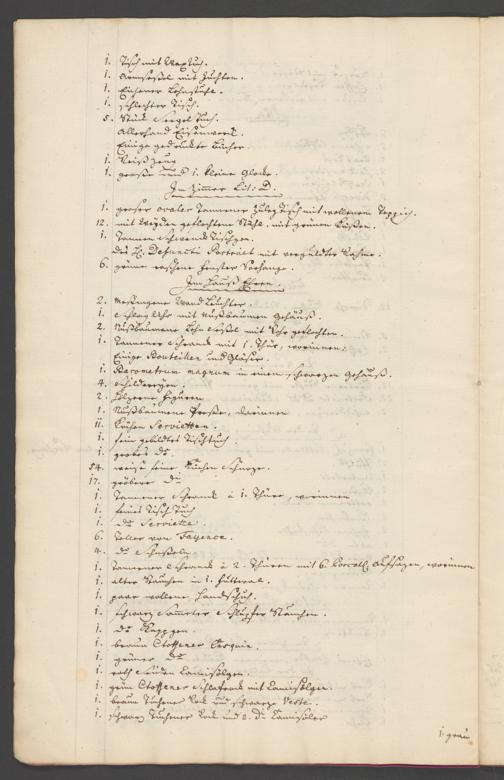 1. Tisch mit Waxtuch.
1. Armseßel mit Juchten.
1. Eichener Lehnstuhl.
1. schlechter Tisch.
5. Stück Seegel Tuch.
Allerhand Eisenwerk.
Einige gedruckte Bücher.
1. Reiß Zeug
1. große und 1. kleine Glocke.
Im Zimmer Lit: D.
1. großer ovaler Tannener Tisch mit wollenem Teppich.
12. mit geflochtene Stühl, mit grünen Küßen.
1. Tannen Tischgen.
des H. Defuncti Portrait mit vergüldter Rahme.
6. grüne Fenster Vorhänge.
Im Hauß Ehren.
2. Meßingene Wand Leuchter.
1. Schlag Uhr mit Nußbaumen Gehäuß.
2. Nußbaumene Lehn Seßel mit Rohr geflochten.
1. Tannener Schranck mit 1. Thür, worinnen,
Einige Bouteillen und Gläser.
1. Barometrum magnum in einem schwarzen Gehäuß.
4. Schildereyen.
2. hölzerne Figuren
1. Nußbaumene Preße, darinnen
11. Servietten.
1. fein gebildtes Tischtuch.
1. grobes do.
54. weise feine Küchen Schürze.
17. gröbere do
1. Tannener Schranck à 1. Thüre, worinnen
1. feines Tisch Tuch
1. do Serviette.
6. Teller von Fayence.
4. do Schüßeln
1. Tannener Schranck à 2. Thüren mit 6. Porcell. Aufsäzen, worinnen
1. alter Stauchen in 1. Futteral.
1. paar wollene Handschuh.
1. schwarz Sammeter Schlupfer Stauchen.
1. do Kappgen.
1. braun Stoffener Casquin.
1. grüner do
1. roth Seiden Camisölgen.
1. grün Stoffener Schlafrock mit Camisölgen.
1. braun Tuchener Rock und schwarze Veste.
1. schwarz Tuchener Rock und 2. do Camisöler
1. grau